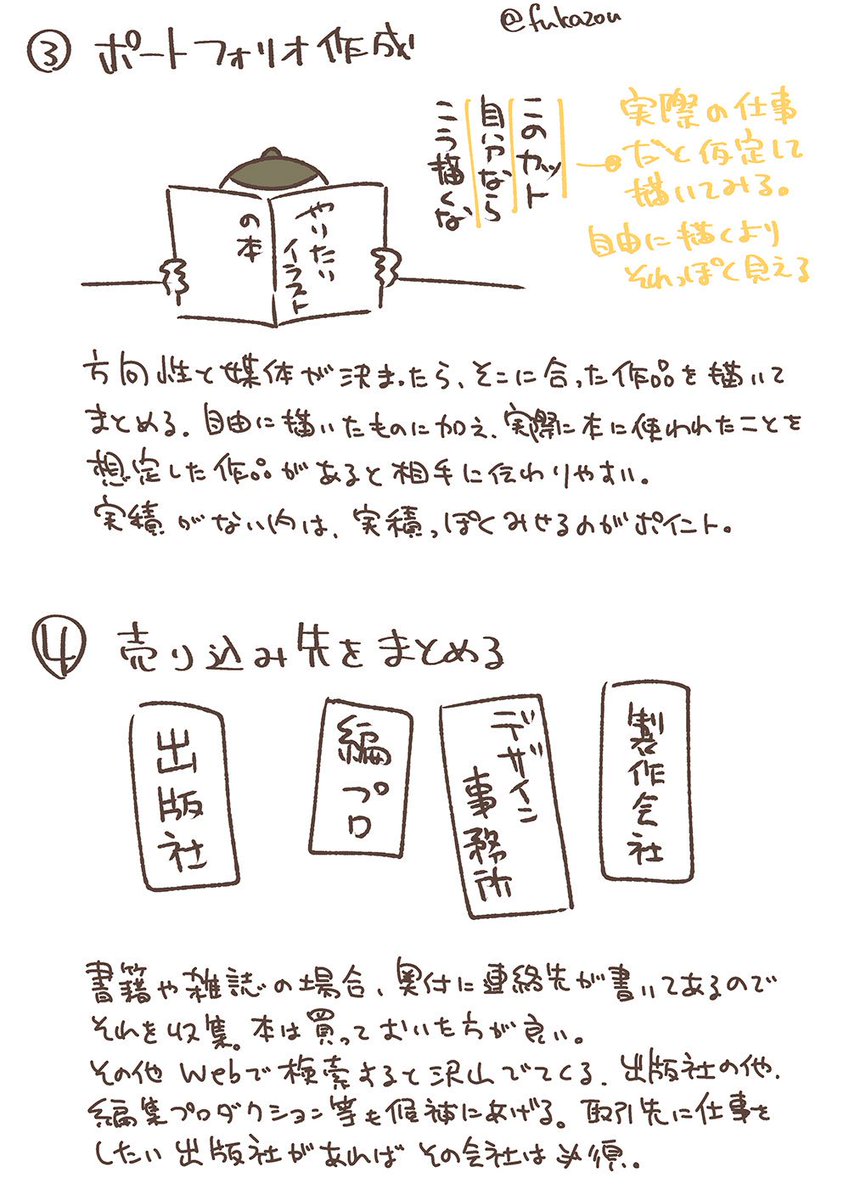 @fukazou
③ ポートフォリオ作成
このカット
自分なら
こう描くな
実際の仕事
だと仮定して
描いてみる。
自由に描くより
それっぽく見える
やりたい
イラスト
の本
方向性と媒体が決まったら、そこに合った作品を描いて
まとめる。自由に描いたものに加え、実際に本に使われたことを
想定した作品があると相手に伝わりやすい。
実績がない内は、実績っぽくみせるのがポイント。
④ 売り込み先をまとめる
出版社
編プロ
デザイン
事務所
製作会社
書籍や雑誌の場合、奥付に連絡先が書いてあるので
それを収集。本は買っておいた方が良い。
その他Webで検索すると沢山でてくる。出版社の他、
編集プロダクション等も候補にあげる。取引先に仕事を
したい出版社があればその会社は必須。